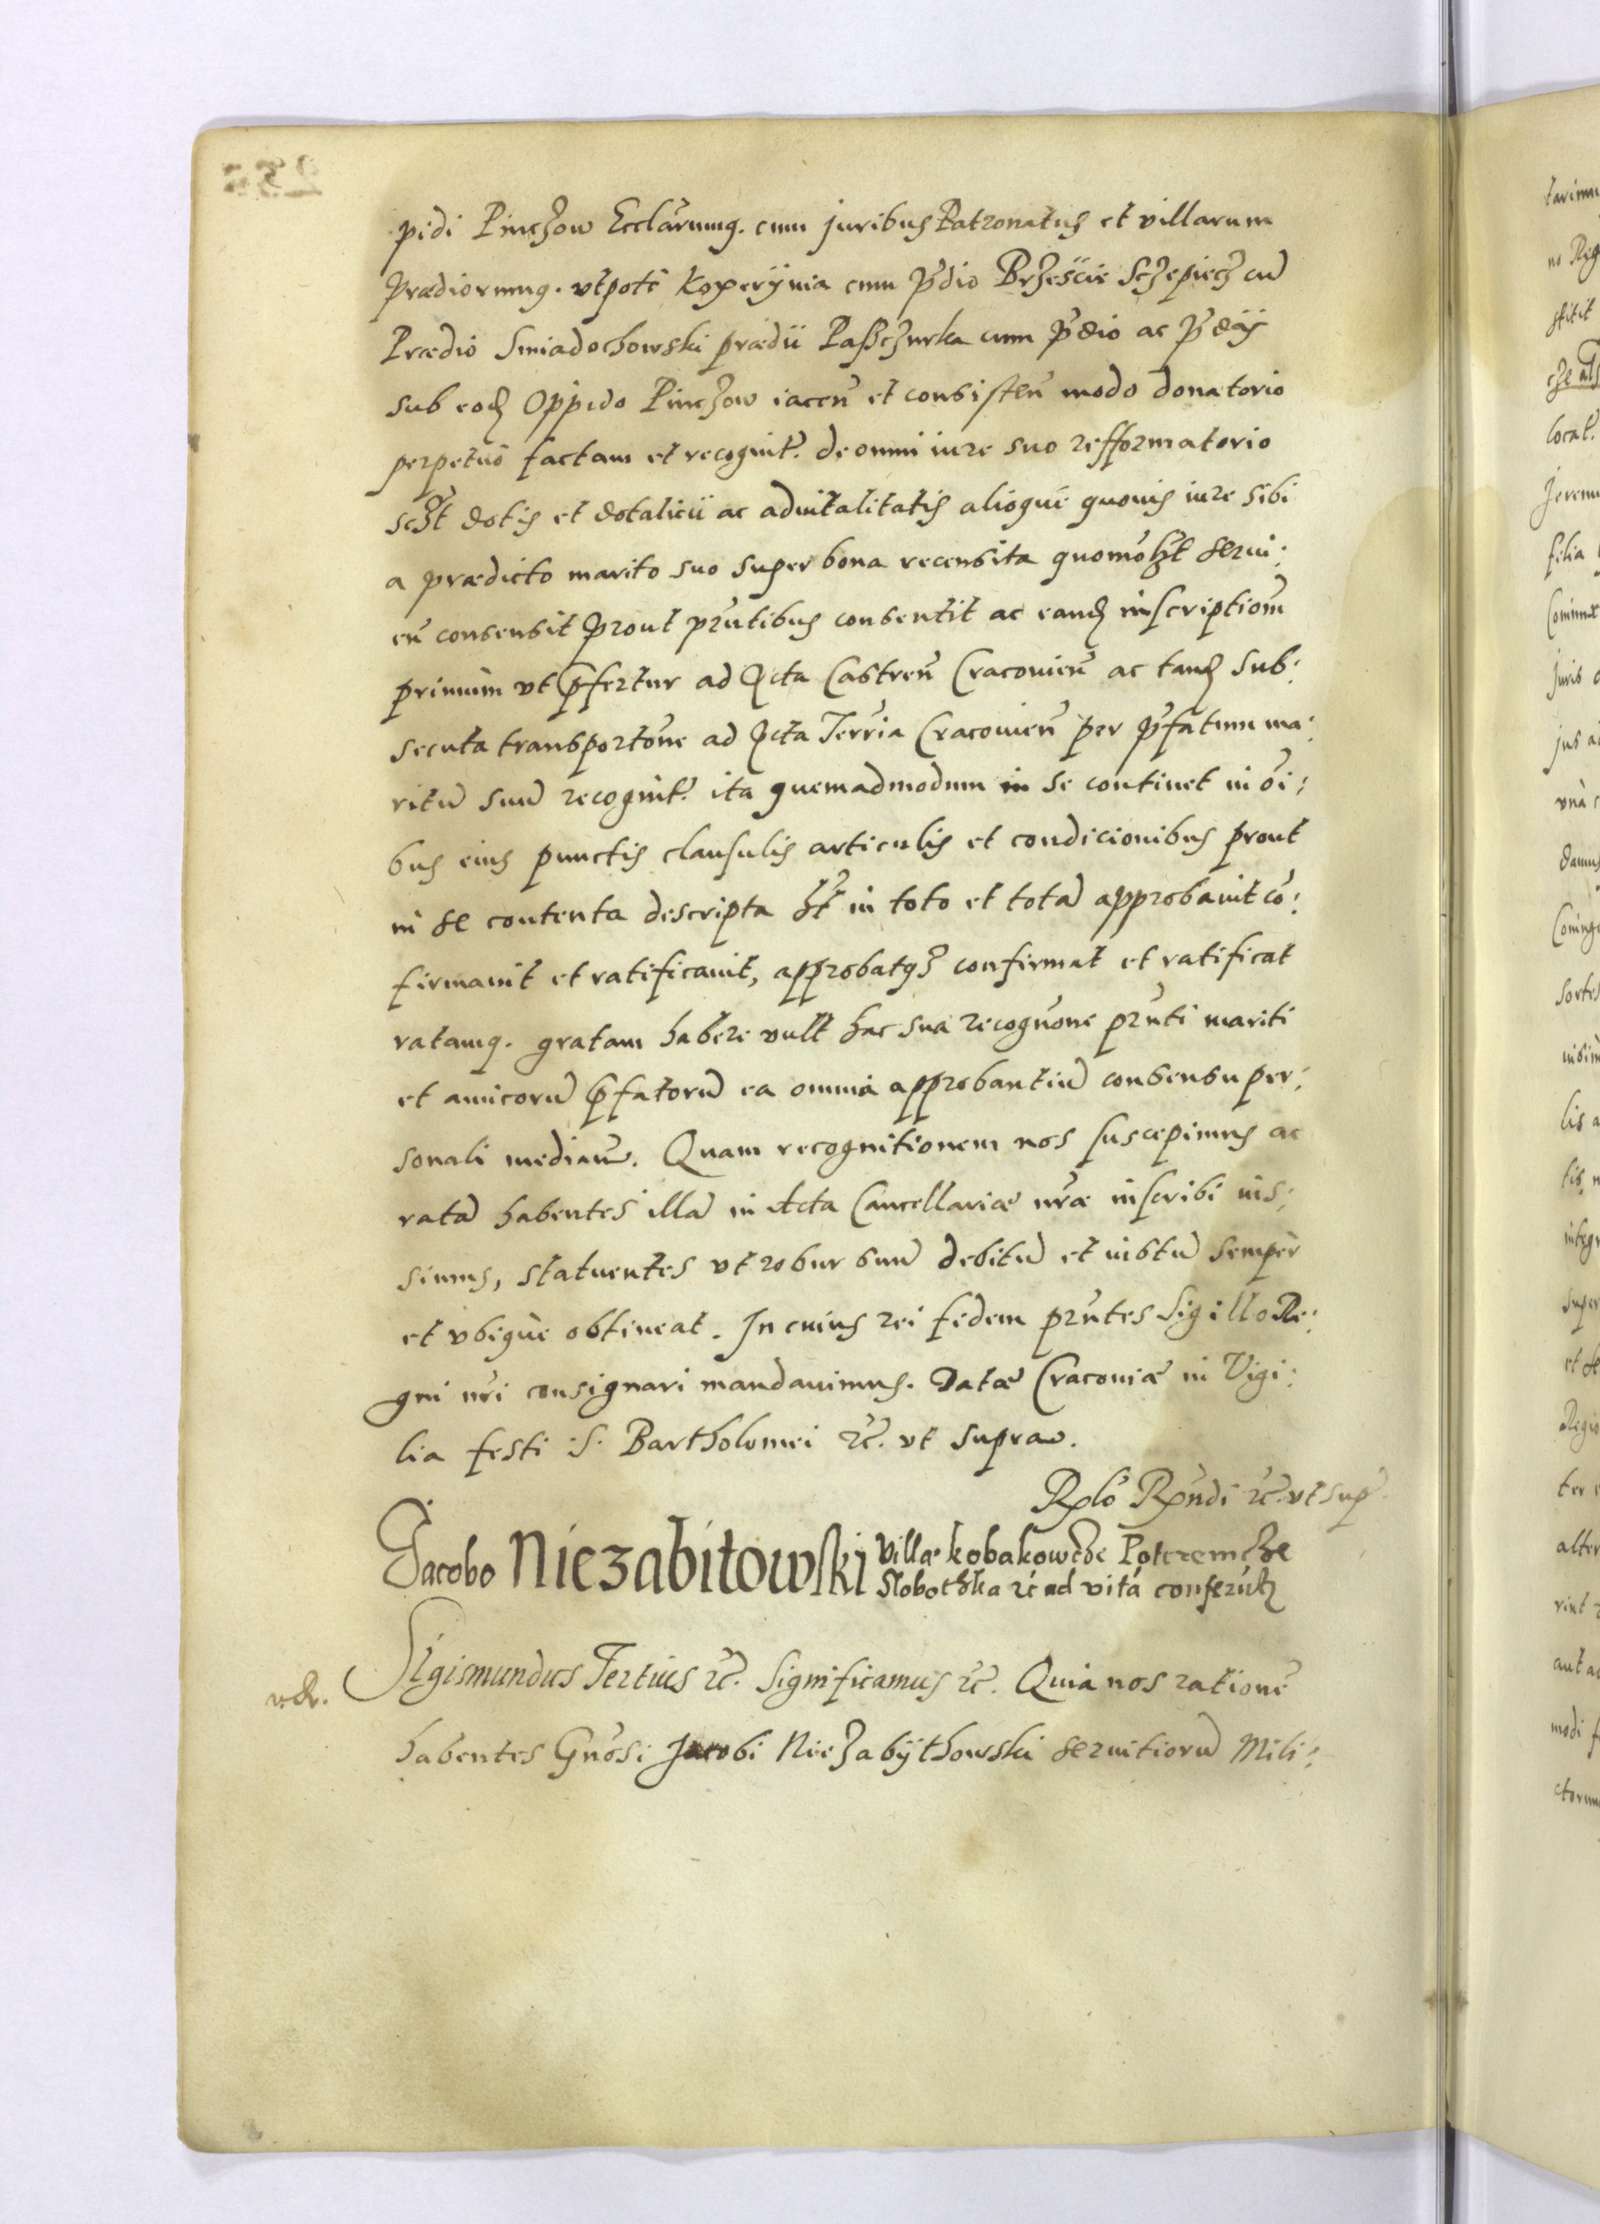 pidi Pinczow Ecclārumq. cum juribus Patronatus et villarum
Prædiorumq. vtpote Koperÿnia cum p̃dio Brzeście Sczepiecz cū
Prædio Smiadochowski prædii Pasczurka cum p̃dio ac p̃dijs
sub eod. Oppido Pinczow iaceñ et consisteñ modo donatorio
perpetuo factam et recognit. de omni iure suo refformatorio
sc̃z̃t dotis et dotalicii ac aduitalitatis alioque quouis iure sibi
a prædicto marito suo super bona recensita quomol̃zt serui:
eñ consensit prout pñtibus consentit ac eand. inscriptioñ
primùm vt p̃fertur ad Acta Castreñ Cracouieñ ac tand. sub:
secuta transportõne ad Acta Terrĩa Cracouieñ per p̃fatum ma:
ritū suū recognit. ita quemadmodum in se continet in õi:
bus eius punctis clausulis articulis et condicionibus prout
in se contenta descripta h̃t in toto et totā approbauit cō:
firmauit et ratificauit, approbatq3 confirmat et ratificat
ratamq. gratam habere vult hac sua recognõne pr̃nti mariti
et amicorū p̃fatorū ea omnia approbantiū consensu per:
sonali median̄. Quam recognitionem nos suscepimus ac
ratā habentes illā in Acta Cancellariæ nr̃æ inscribi ius:
simus, statuentes vt robur suū debitū et iustū semper
et vbique obtineat. In cuius rei fidem pr̃ntes Sigillo Re:
gni nr̃i consignari mandauimus. Datæ Cracouiæ in Vigi:
lia festi S. Bartholomei &c. vt supra.
Rplõ Rp̃ndi &c. vt sup̃.
Jacobo Niezabitowski Villæ Kobakowcze Potrzemcze
Slobothka &c ad vitā conferūt.
Sigismundus Tertius &c. Significamus &c. Quia nos rationē
habentes Gnõsi Jacobi Niezabÿthowski seruitiorū Mili: